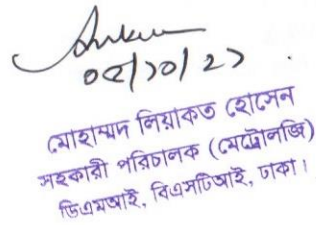 ০৫/১০/২১
মোহাম্মদ লিয়াকত হোসেন
সহকারী পরিচালক (মেট্রোলজি)
ডিএমআই, বিএসটিআই, ঢাকা।